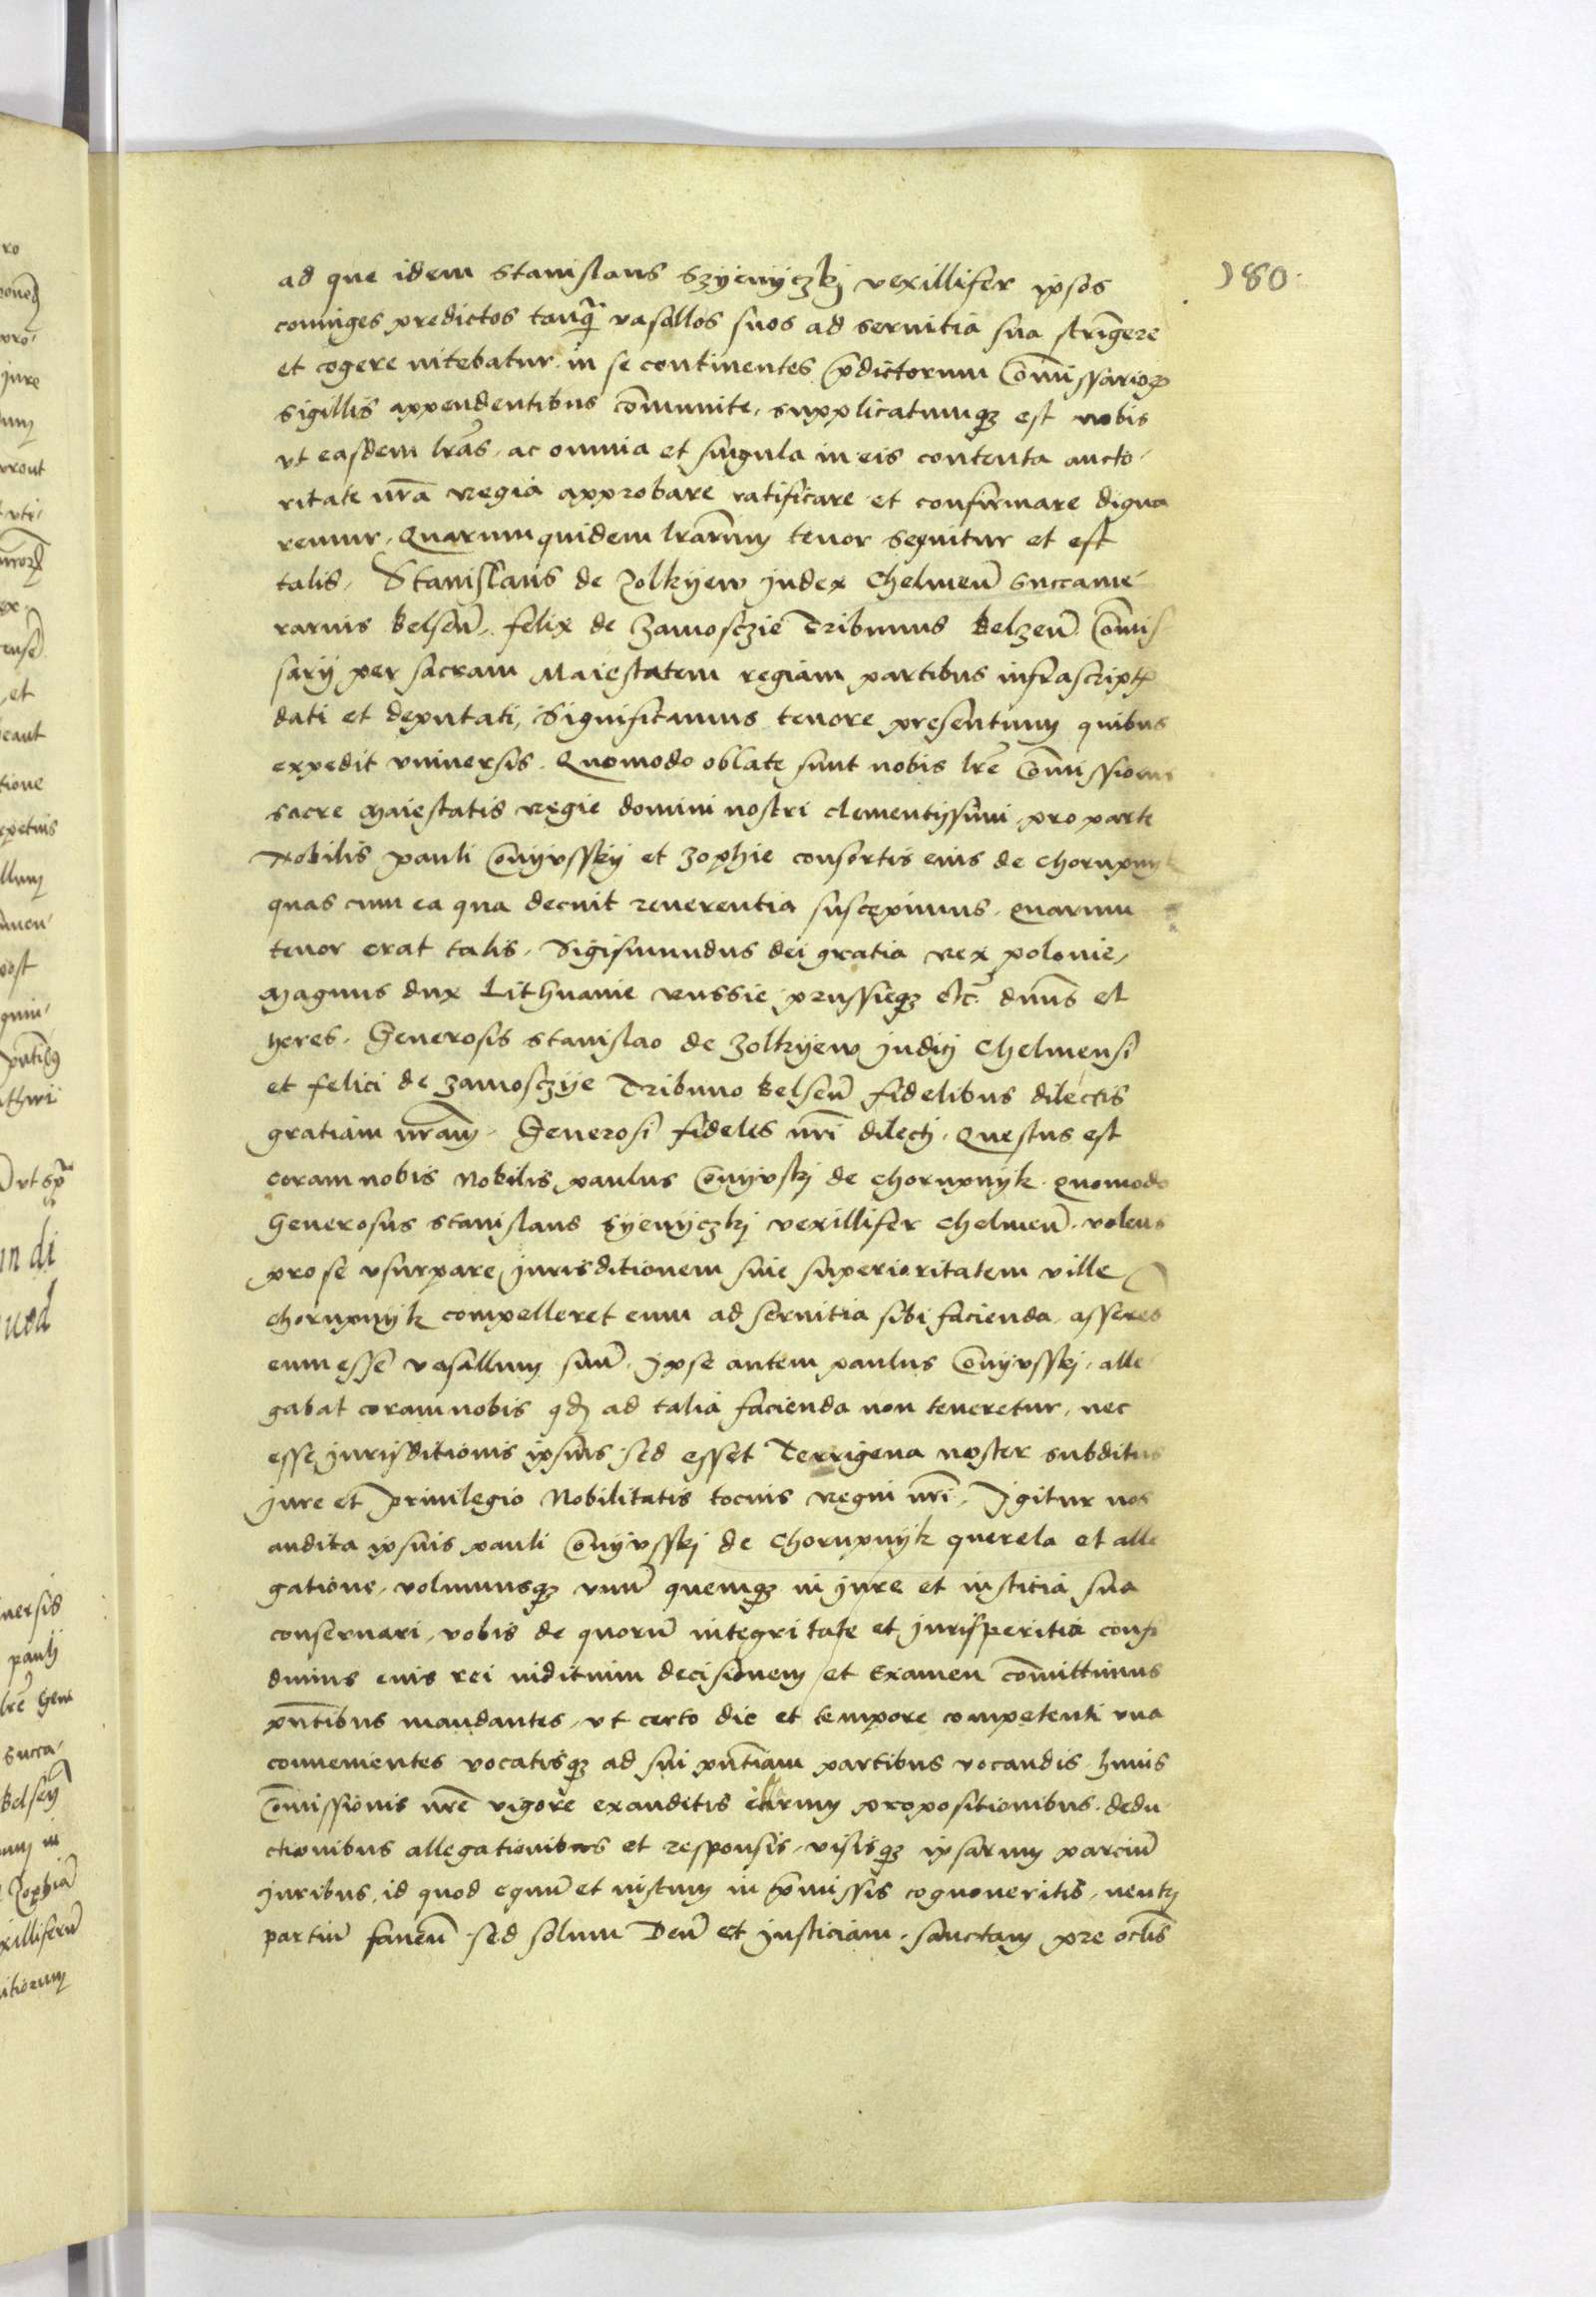 180.
ad que idem Stanislaus Szyenyczkj vexillifer ipsos
coniuges predictos tanq̃ vasallos suos ad seruitia sua strĩgere
et cogere nitebatur in se continentes p̃dictorum Com̃issarioꝝ
sigillis appendentibus com̃unite, supplicatumqꝫ est nobis
vt easdem lrãs, ac omnia et singula in eis contenta aucto
ritate nrã regia approbare ratificare et confirmare digna
remur, Quarumquidem lrãrum tenor sequitur et est
talis, Stanislaus de Zolkyew Judex Chelmeñ Succame
rarius Belseñ, felix de Zamosczie Tribunus Belzeñ Com̃is
sarij per sacram Maiestatem regiam partibus infrascript
dati et deputati, Significamus tenore presentium quibus
expedit vniuersis, Quomodo oblate sunt nobis lrẽ Com̃issionis
sacre Maiestatis regie domini nostri clementissimi pro parte
Nobilis pauli Conyvsskij et Zophie consortis eius de chorupnyk
quas cum ea qua decuit reuerentia suscepimus, quarum
tenor erat talis, Sigismundus dei gratia rex polonie,
Magnus dux Lithuanie russie prussieqꝫ etc̃ dnũs et
heres, Generosis Stanislao de Zolkyew Judicj Chelmensi
et felici de zamosczije Tribuno Belseñ fidelibus dilectis
gratiam nrãm, Generosi fideles nrĩ dilectj, Questus est
coram nobis Nobilis paulus Conyvskj de chorupnyk quomodo
Generosus Stanislaus Syenyczkj vexillifer Chelmeñ volens
pro se vsurpare jurisditionem siue superioritatem ville
chorupnyk compelleret eum ad seruitia sibi facienda, asserẽs
eum esse vasallum suũ, Ipse autem paulus Conyvsskj, alle
gabat coram nobis qđ ad talia facienda non teneretur, nec
esse jurisditionis ipsius sed esset Terrigena noster subditus
jure et Priuilegio Nobilitatis tocius regni nrĩ, Igitur nos
audita ipsius pauli Conyvsskj de Chorupnyk querela et alle
gatione, volumusqꝫ vnũ quemqꝫ in jure et iusticia sua
conseruari, vobis de quorũ integritate et jurisperitia confi
dimus eius rei iuditium decisionem et Examen com̃ittimus
pñtibus mandantes, vt certo die et tempore competenti vna
conuenientes vocatisqꝫ ad sui pñtiam partibus vocandis huius
Com̃issionis nrẽ vigore exauditis earum propositionibus, dedu
ctionibus allegationibus et responsis, visisqꝫ ipsarum parciũ
Juribus, id quod equũ et iustum in p̃missis cognoueritis, neutrj
partiũ faueñ, sed solum Deũ et justiciam sanctam pre oclis̃